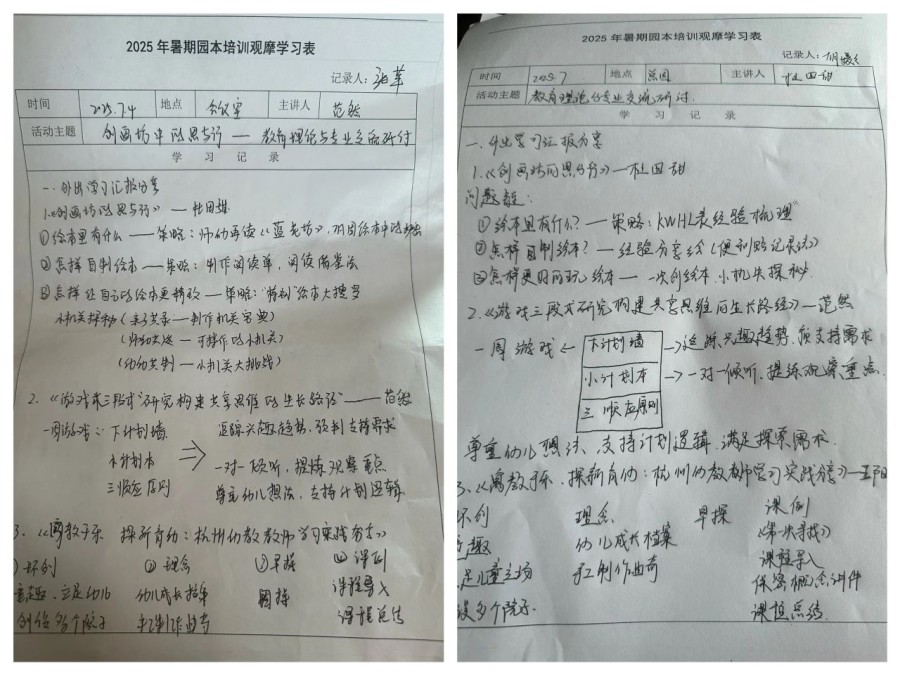 2025年暑期园本培训观摩学习表
记录人：
时间 2025.7.4 地点 会议室 主讲人 范然
活动主题 创画坊中的思与行——教育理论与专业交流研讨
学习记录
一、外出学习汇报分享
1.《创画坊的思与行》——杜田甜
①绘本里有什么——策略：师幼再读《
②怎样自制绘本——策略：制作阅读单，阅读
③怎样让自己的绘本更精致——策略："特别"绘本大搜罗
小机关探秘（亲子共录——制作机关宝典）
（师幼共选——可操作的小机关）
（幼幼共制——小机关大挑战）
2.《游戏三段式"研究构建共享思维的生长路径》——范然
一周游戏：下计划墙 追踪兴趣趋势，预判支持需求
小计划本 一对一倾听，提炼观察重点
三顺应原则 尊重幼儿想法，支持计划逻辑
3.《寓教于乐 探新育幼：杭州幼教教师学习实践分享》
环创 ②理念 ③早操 ④课例
童趣，立足幼儿 幼儿成长档案 课程导入
创设多个院子 手工制作曲奇 课程总结
2025年暑期园本培训观摩学习表
记录人：
时间 2025.7 地点 主讲人 杜田甜
活动主题 教育理论与专业交流研讨.
学习记录
一、外出学习汇报分享
1.《创画坊的思与行》——杜田甜
问题链：
①绘本里有什么？——策略：KWHL表经验梳理"
②怎样自制绘本？——经验分享会（便利贴记录法）
③怎样更好的玩绘本——次创绘本 小机关探秘.
2.《游戏三段式研究构建共享思维的生长路径》——范然
一周游戏 ← 下计划墙 → 追踪兴趣趋势、预支持需求
小计划本 → 一对一倾听、提炼观察重点
三顺应原则
尊重幼儿想法、支持计划逻辑、满足探索需求.
3、《寓教于乐、探新育幼：杭州幼教教师学习实践分享》
环创 理念 早操 课例
童趣 幼儿成长档案 《第一次寻找》
足儿童立场 手工制作曲奇 课程导入
设多个院子. 课程总结